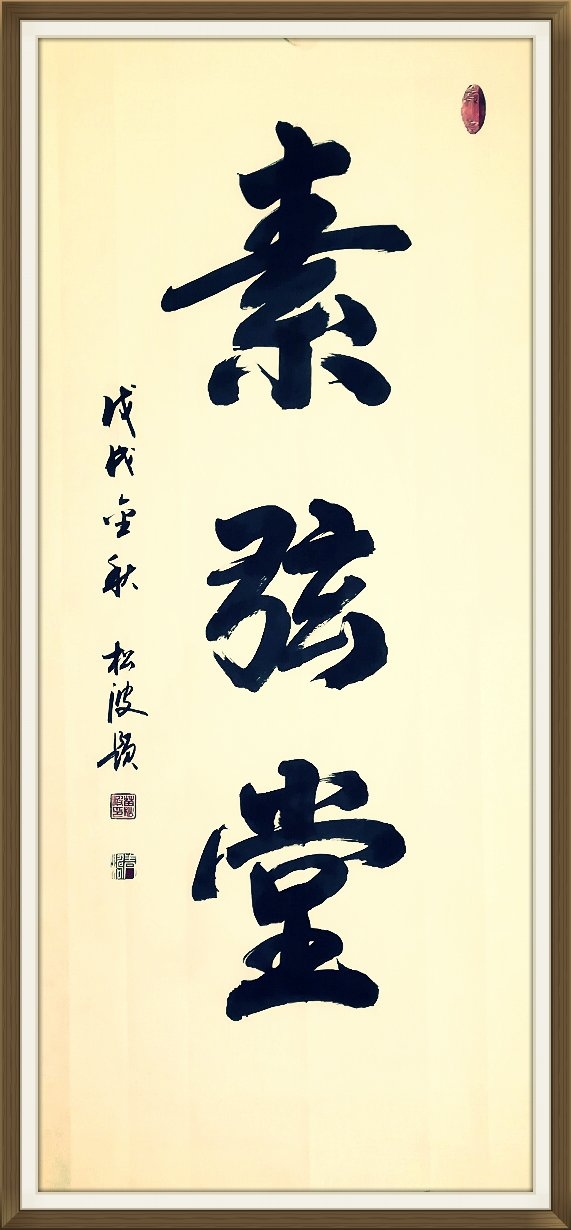 素弦堂
戊戌金秋 松波题